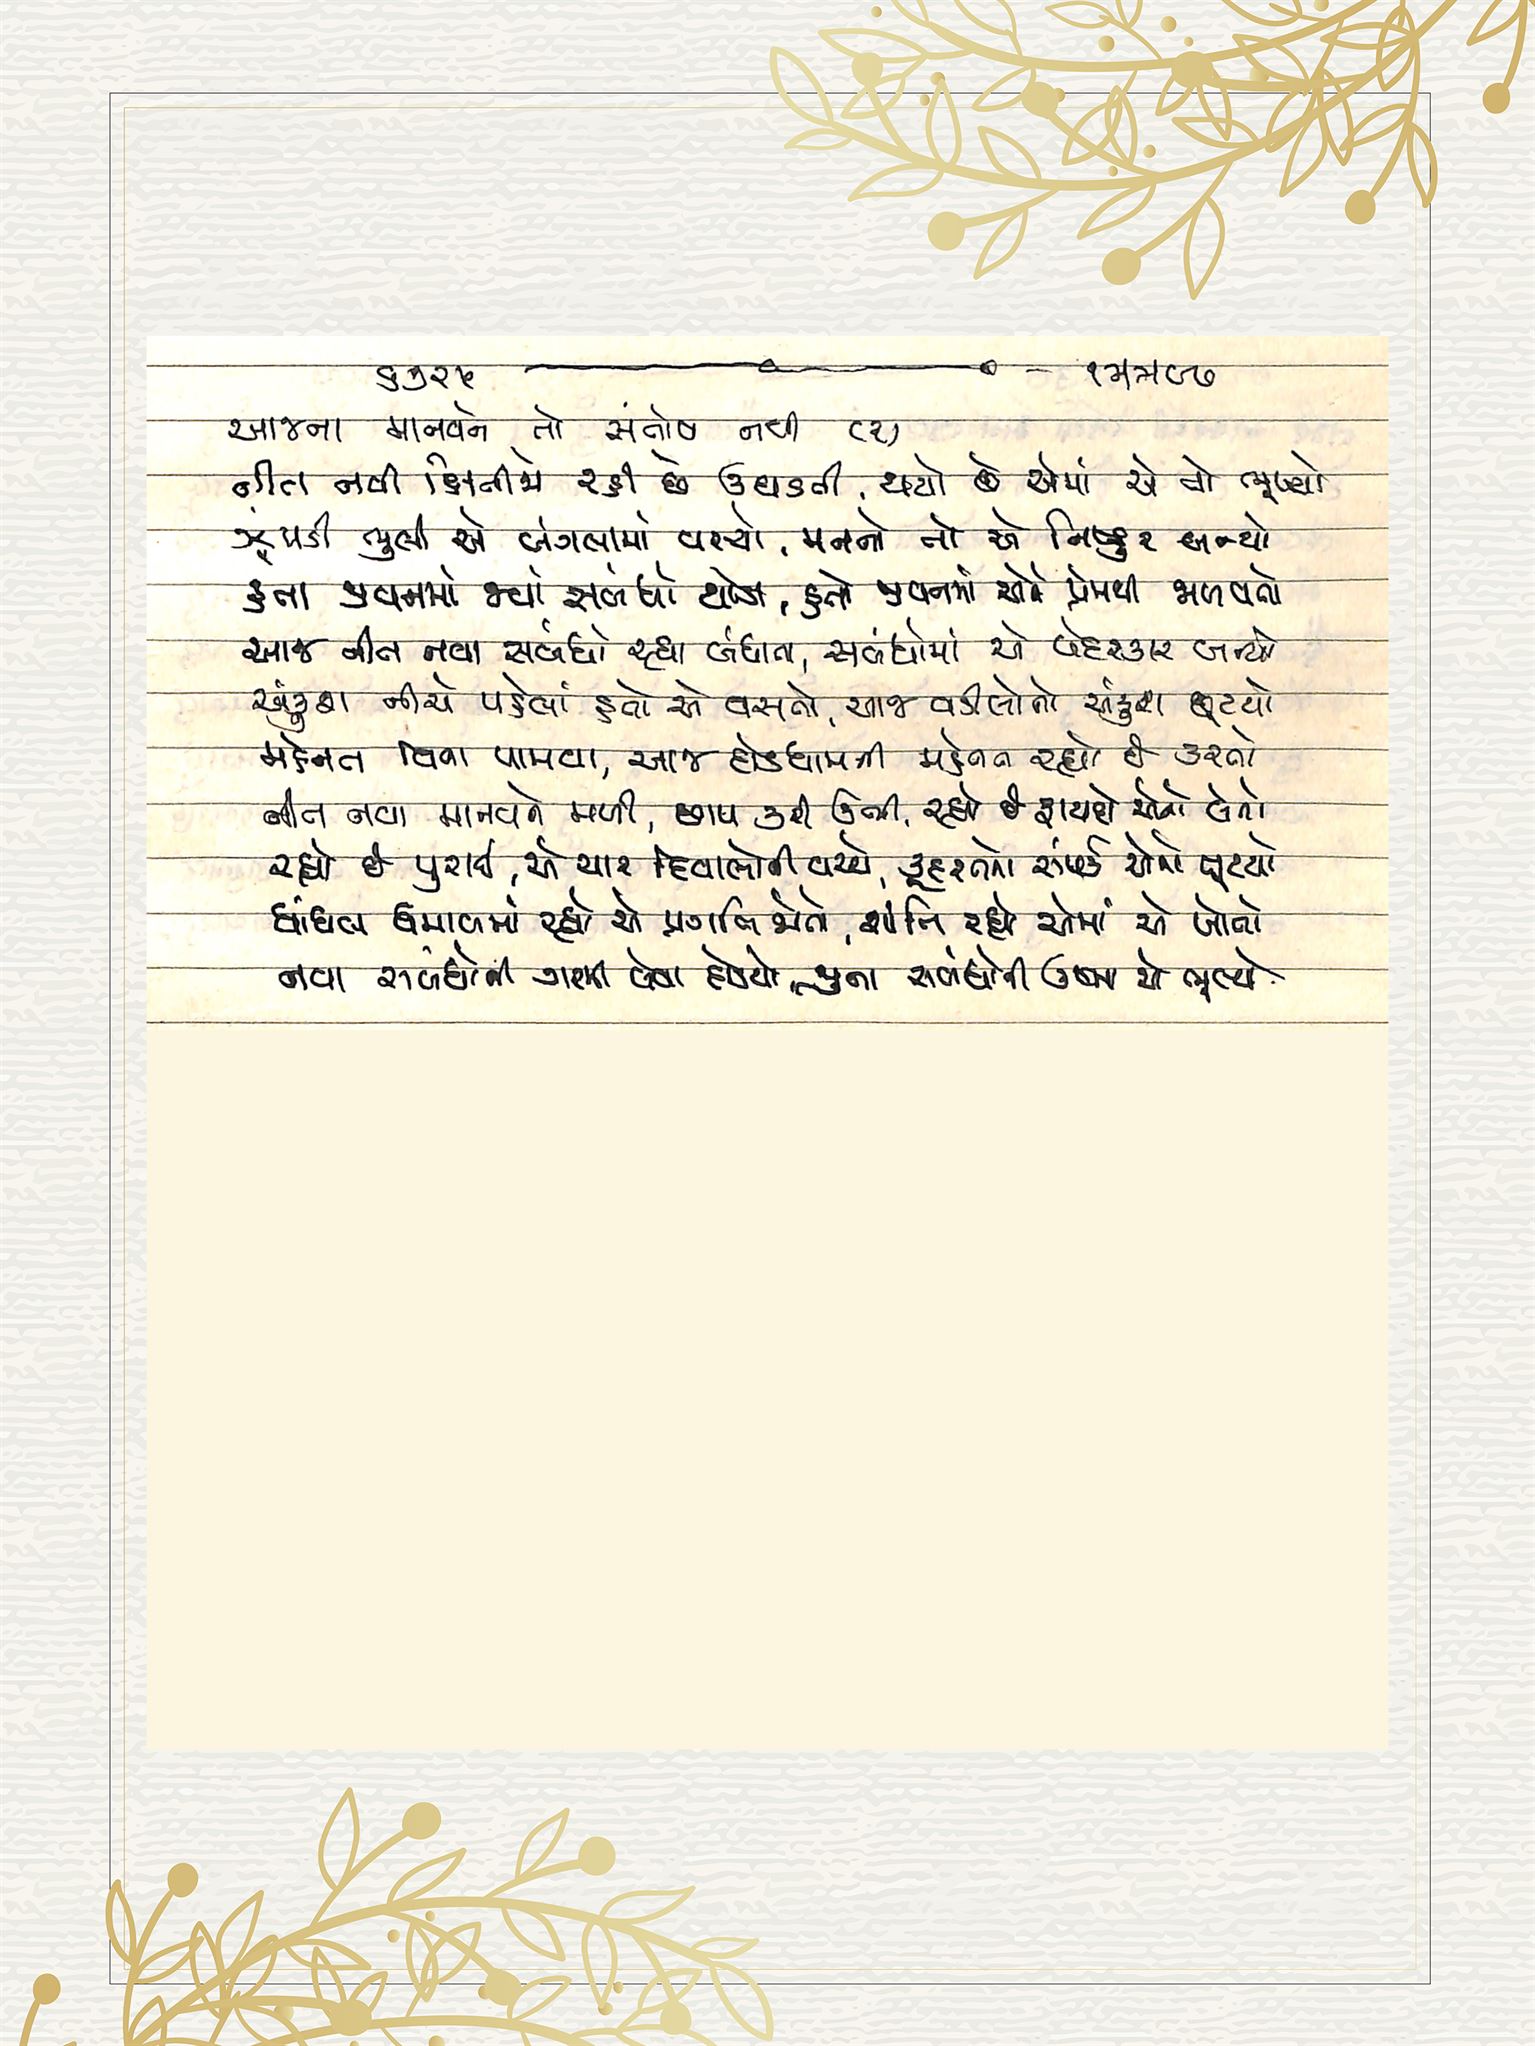 આજના માનવને તો સંતોષ નથી (૨)
નીત નવી ક્ષિતીજો રહી છે ઉઘડતી, થયો છે એમાં એ તો ભૂખ્યો
ઝૂંપડી ભુલી એ બંગલામાં વસ્યો, મનનો તો એ નિષ્ઠુર બન્યો
હતા જીવનમાં જ્યાં સબંધો થોડા, હતો જીવનમાં એને પ્રેમથી જાળવતો
આજ નીત નવા સબંધો રહ્યા બંધાતા, સબંધોમાં એ બેદરકાર બન્યો
અંકુશ નીચે પહેલાં હતો એ વસતો, આજ વડીલોનો અંકુશ છૂટયો
મહેનત વિના પામવા, આજ દોડધામની મહેનત રહ્યો છે કરતો
નીત નવા માનવને મળી, છાપ કરી ઉભી, રહ્યો છે ફાયદો એનો લેતો
રહ્યો છે પુરાઈ, એ ચાર દિવાલોની વચ્ચે, કૂદરતનો સંપર્ક એનો છૂટયો
ધાંધલ ધમાલમાં રહ્યો એ પ્રગતિ જોતો, શાંતિ રહ્યો એમાં એ ખોતો
નવા સબંધોની ગરમી લેવા દોડયો, જુના સબંધોની ઉષ્મા એ ભૂલ્યો